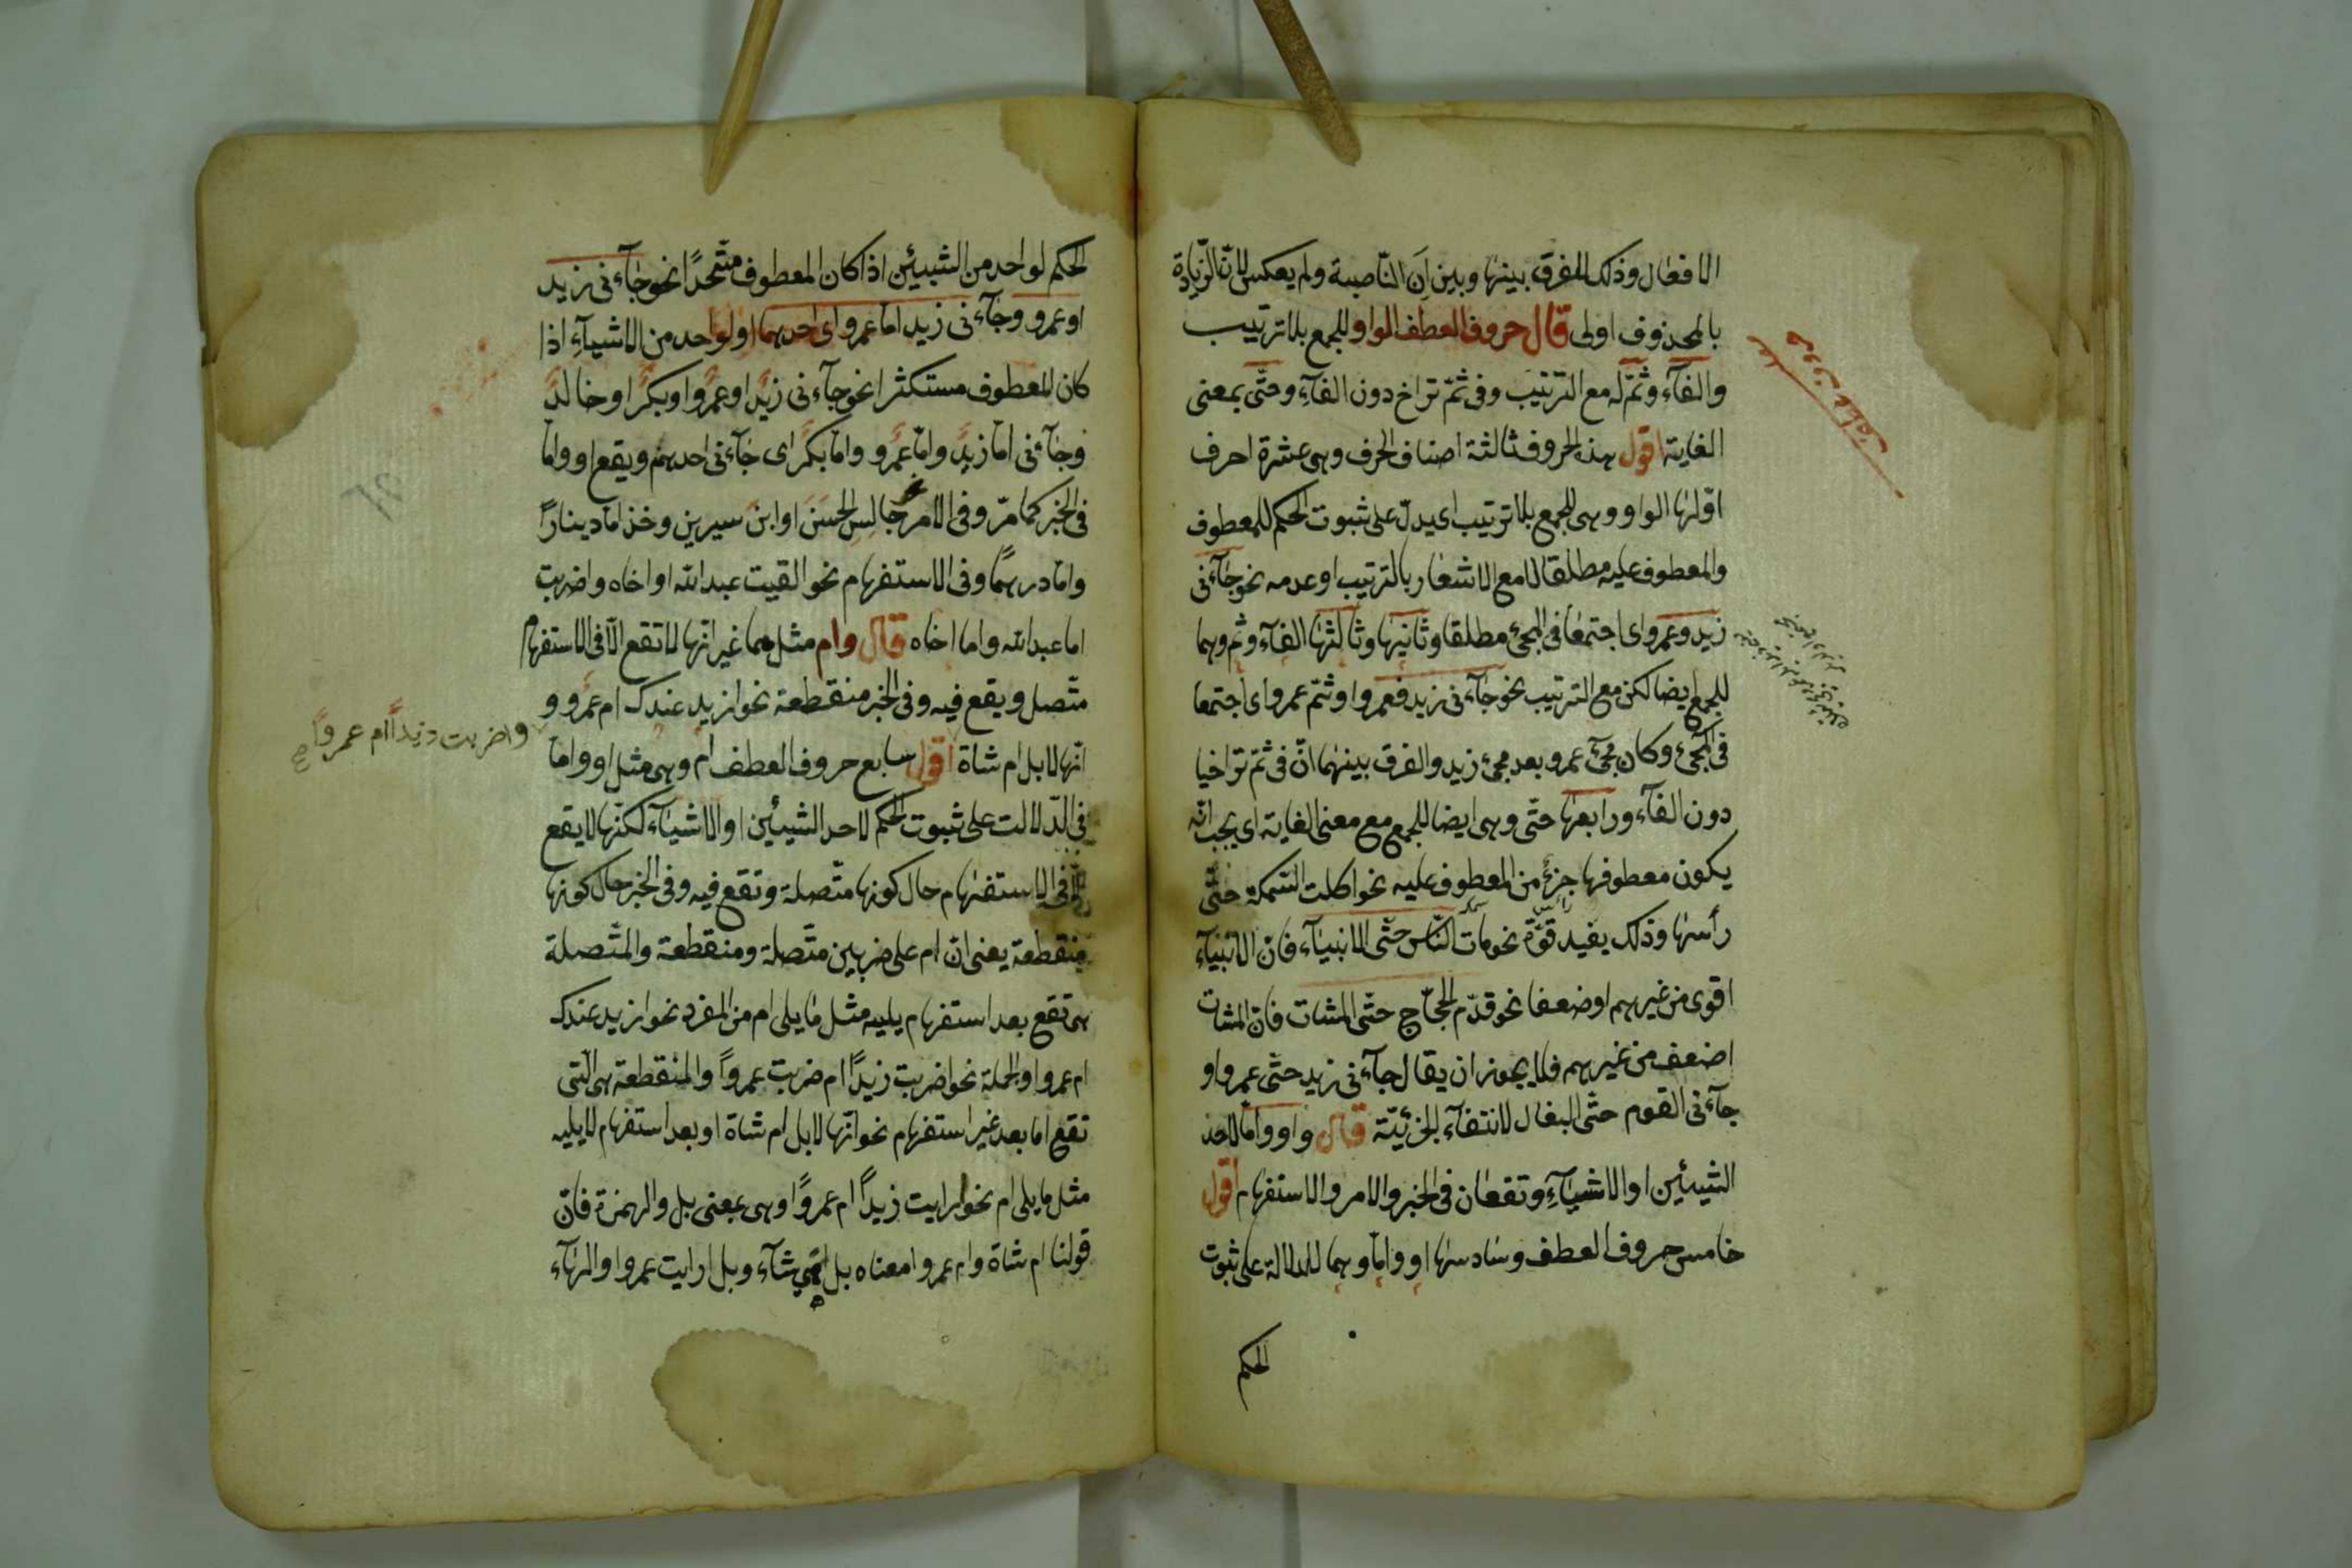 الافعال وذلك للفرق بينها وبين ان الناصبة ولم يعكس لان الزيادة
بالمحذوف اولى قال حروف العطف الواو للجمع بلا ترتيب
والفآء وثمّ له مع الترتيب وفى ثمّ تراخ دون الفآء وحتّى بمعنى
الغاية اقول هذه الحروف ثالثة اصناف الحرف وهى عشرة احرف
اوّلها الواو وهى للجمع بلا ترتيب اى يدلّ على ثبوت الحكم للمعطوف
والمعطوف عليه مطلقا لا مع الاشعار بالترتيب او عدمه نحو جآءنى
زيد وعمرو اى اجتمعا فى المجئ مطلقا وثانيها وثالثها الفآء وثم وهما
للجمع ايضا لكن مع الترتيب نحو جآءنى زيد فعمرو او ثمّ عمرو اى اجتمعا
فى المجئ وكان مجئ عمرو بعد مجئ زيد والفرق بينهما انّ فى ثمّ تراخيا
دون الفآء ورابعها حتّى وهى ايضا للجمع مع معنى الغاية اى يجب انّه
يكون معطوفها جزءً من المعطوف عليه نحو اكلت السّمكة حتّى
رأسها وذلك يفيد قوّة نحو مات النّاس حتّى الانبيآء فانّ الانبيآء
اقوى من غيرهم او ضعفا نحو قدّم الحجّاج حتّى المشات فانّ المشات
اضعف من غيرهم فلا يجوز ان يقال جآءنى زيد حتّى عمرو او
جآءنى القوم حتّى البغال لانتفآء الجزئيّة قال واو وامّا لاحد
الشيئين او الاشيآء وتقعان فى الخبر والامر والاستفهام اقول
خامس حروف العطف وسادسها او وامّا وهما للدلالة على ثبوت
الحكم
الحكم لواحد من الشيئين اذا كان المعطوف متّحدًا نحو جآءنى زيد
او عمرو وجآءنى زيد امّا عمرو اى احدهما او لواحد من الاشيآء اذا
كان المعطوف مستكثرا نحو جآءنى زيد او عمرو او بكر او خالد
وجآءنى امّا زيد وامّا عمرو وامّا بكر اى جآءنى احدهم ويقع او وامّا
فى الخبر كما مرّ وفى الامر نحو جالس الحسن او ابن سيرين وخذ امّا دينارًا
وامّا درهمًا وفى الاستفهام نحو القيت عبد الله او اخاه واضربت
اما عبد الله واما اخاه قال وام مثلهما غير انّها لا تقع الّا فى الاستفهام
متّصل ويقع فيه وفى الخبر منقطعة نحو ازيد عندك ام عمرو و
واضربت زيدًا ام عمروًا صح
انّها لابل ام شاة اقول سابع حروف العطف ام وهى مثل او وامّا
فى الدّلالت على ثبوت الحكم لاحد الشيئين او الاشيآء لكنّها لا يقع
الّا فى الاستفهام حال كونها متّصلة وتقع فيه وفى الخبر حال كونها
منقطعة يعنى انّ ام على ضربين متّصلة ومنقطعة والمتّصلة
هى تقع بعد استفهام يليه مثل ما يلى ام من المفرد نحو ازيد عندك
ام عمرو او الجملة نحو اضربت زيدًا ام ضربت عمروًا والمنقطعة هى الّتى
تقع اما بعد غير استفهام نحو انّها لابل ام شاة او بعد استفهام لا يليه
مثل ما يلى ام نحو ارايت زيدًا ام عمروًا وهى بمعنى بل والهمزة فانّ
قولنا ام شاة وام عمروا معناه بل اهى شآة وبل ارايت عمروا والهآء